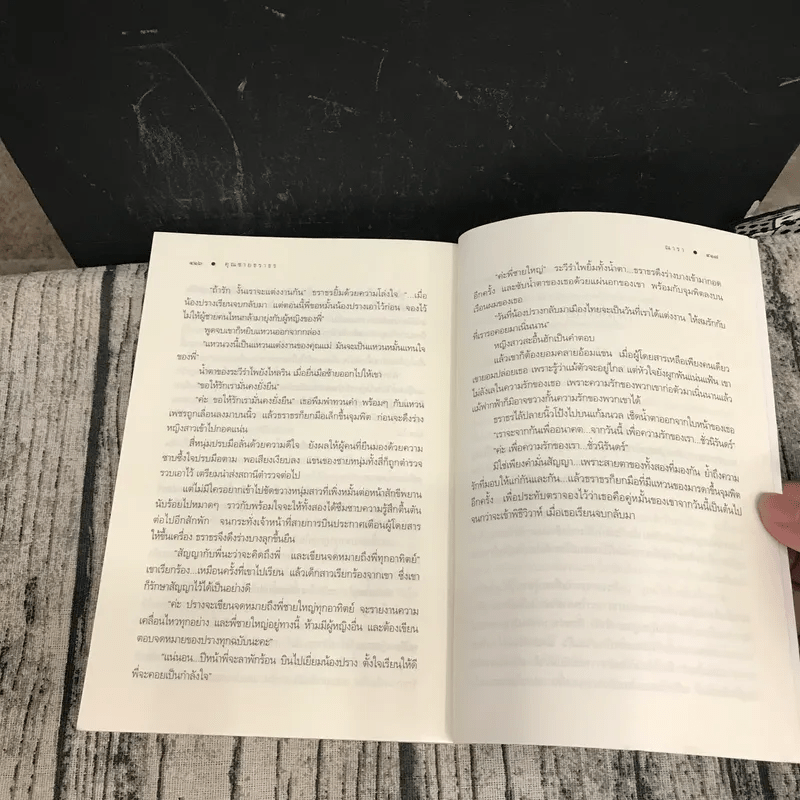 ๔๒๖ ● คุณชายธราธร
"ถ้ารัก งั้นเราจะแต่งงานกัน" ธราธรยิ้มด้วยความโล่งใจ "...เมื่อ
น้องปรางเรียนจบกลับมา แต่ตอนนี้พี่ขอหมั้นน้องปรางเอาไว้ก่อน จองไว้
ไม่ให้ผู้ชายคนไหนกล้ามายุ่งกับผู้หญิงของพี่"
พูดจบเขาก็หยิบแหวนออกจากกล่อง
"แหวนวงนี้เป็นแหวนแต่งงานของคุณแม่ มันจะเป็นแหวนหมั้นแทนใจ
ของพี่"
น้ำตาของระวีรำไพยังไหลริน เมื่อยื่นมือซ้ายออกไปให้เขา
"ขอให้รักเรามั่นคงยั่งยืน"
"ค่ะ ขอให้รักเรามั่นคงยั่งยืน" เธอพึมพำทวนคำ พร้อมๆ กับแหวน
เพชรถูกเลื่อนลงมาบนนิ้ว แล้วธราธรก็ยกมือเล็กขึ้นจุมพิต ก่อนจะดึงร่าง
หญิงสาวเข้าไปกอดแน่น
สี่หนุ่มปรบมือลั่นด้วยความดีใจ ยังผลให้ผู้คนที่ยืนมองด้วยความ
ซาบซึ้งใจปรบมือตาม พอเสียงเงียบลง แขนของชายหนุ่มทั้งสี่ก็ถูกตำรวจ
รวบเอาไว้ เตรียมนำส่งสถานีตำรวจต่อไป
แต่ไม่มีใครอยากเข้าไปขัดขวางหนุ่มสาวที่เพิ่งหมั้นต่อหน้าสักขีพยาน
นับร้อยไปหมาดๆ ราวกับพร้อมใจจะให้ทั้งสองได้ซึมซาบความรู้สึกตื้นตัน
ต่อไปอีกสักพัก จนกระทั่งเจ้าหน้าที่สายการบินประกาศเตือนผู้โดยสาร
ให้ขึ้นเครื่อง ธราธรจึงดึงร่างบางลุกขึ้นยืน
"สัญญากับพี่นะว่าจะคิดถึงพี่ และเขียนจดหมายถึงพี่ทุกอาทิตย์"
เขาเรียกร้อง...เหมือนครั้งที่เขาไปเรียน แล้วเด็กสาวเรียกร้องจากเขา ซึ่งเขา
ก็รักษาสัญญาไว้ได้เป็นอย่างดี
"ค่ะ ปรางจะเขียนจดหมายถึงพี่ชายใหญ่ทุกอาทิตย์ จะรายงานความ
เคลื่อนไหวทุกอย่าง และพี่ชายใหญ่อยู่ทางนี้ ห้ามมีผู้หญิงอื่น และต้องเขียน
ตอบจดหมายของปรางทุกฉบับนะคะ"
"แน่นอน...ปีหน้าพี่จะลาพักร้อน บินไปเยี่ยมน้องปราง ตั้งใจเรียนให้ดี
พี่จะคอยเป็นกำลังใจ"
ณารา ● ๔๒๗
"ค่ะพี่ชายใหญ่" ระวีรำไพยิ้มทั้งน้ำตา...ธราธรดึงร่างบางเข้ามากอด
อีกครั้ง และซับน้ำตาของเธอด้วยแผ่นอกของเขา พร้อมกับจุมพิตลงบน
เรือนผมของเธอ
"วันที่น้องปรางกลับมาเมืองไทยจะเป็นวันที่เราได้แต่งงาน ให้สมรักกับ
ที่เรารอคอยมาเนิ่นนาน"
หญิงสาวสะอื้นฮักเป็นคำตอบ
แล้วเขาก็ต้องยอมคลายอ้อมแขน เมื่อผู้โดยสารเหลือเพียงคนเดียว
เขายอมปล่อยเธอ เพราะรู้ว่าแม้ตัวจะอยู่ไกล แต่หัวใจยังผูกพันแน่นแฟ้น เขา
ไม่ลังเลในความรักของเธอ เพราะความรักของพวกเขาก่อตัวมาเนิ่นนานแล้ว
แม้ฟากฟ้าก็มิอาจขวางกั้นความรักของพวกเขาได้
ธราธรไล้ปลายนิ้วโป้งไปบนแก้มนวล เช็ดน้ำตาออกจากใบหน้าของเธอ
"เราจะจากกันเพื่ออนาคต...จากวันนี้ เพื่อความรักของเรา...ชั่วนิรันดร์"
"ค่ะ เพื่อความรักของเรา...ชั่วนิรันดร์"
มิใช่เพียงคำมั่นสัญญา...เพราะสายตาของทั้งสองที่มองกัน ย้ำถึงความ
รักที่มอบให้แก่กันและกัน...แล้วธราธรก็ยกมือที่มีแหวนของมารดาขึ้นจุมพิต
อีกครั้ง เพื่อประทับตราจองไว้ว่าเธอคือคู่หมั้นของเขาจากวันนี้เป็นต้นไป
จนกว่าจะเข้าพิธีวิวาห์ เมื่อเธอเรียนจบกลับมา